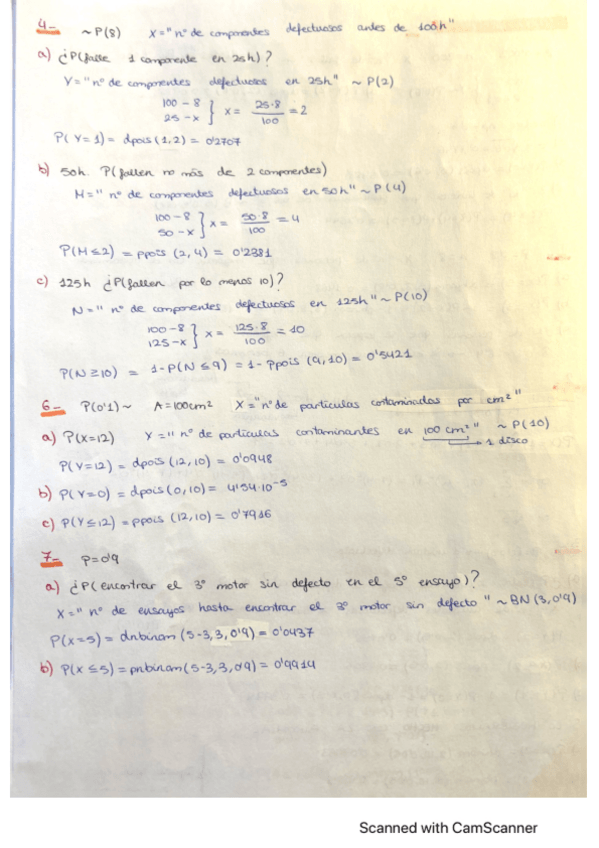 4- ~P(8) X="nº de componentes defectuosos antes de 100h"
a) ¿P(falle 1 componente en 25h)?
Y="nº de componentes defectuosos en 25h" ~ P(2)
100 - 8
25 - x } x = 25·8/100 = 2
P(Y=1) = dpois(1,2) = 0'2707
b) 50h. P(fallen no más de 2 componentes)
M="nº de componentes defectuosos en 50h" ~ P(4)
100 - 8
50 - x } x = 50·8/100 = 4
P(M≤2) = ppois(2,4) = 0'2381
c) 125h ¿P(fallen por lo menos 10)?
N="nº de componentes defectuosos en 125h" ~ P(10)
100 - 8
125 - x } x = 125·8/100 = 10
P(N≥10) = 1-P(N≤9) = 1-ppois(9,10) = 0'5421
6- P(0'1)~ A=100cm² X="nº de partículas contaminadas por cm²"
a) P(X=12) Y="nº de partículas contaminantes en 100 cm²" ~ P(10)
→ 1 disco
P(Y=12) = dpois(12,10) = 0'0948
b) P(Y=0) = dpois(0,10) = 4'54·10⁻⁵
c) P(Y≤12) = ppois(12,10) = 0'7916
7- p=0'9
a) ¿P(encontrar el 3º motor sin defecto en el 5º ensayo)?
X="nº de ensayos hasta encontrar el 3º motor sin defecto" ~ BN(3,0'9)
P(X=5) = dnbinom(5-3,3,0'9) = 0'0437
b) P(X≤5) = pnbinom(5-3,3,0'9) = 0'9914
Scanned with CamScanner